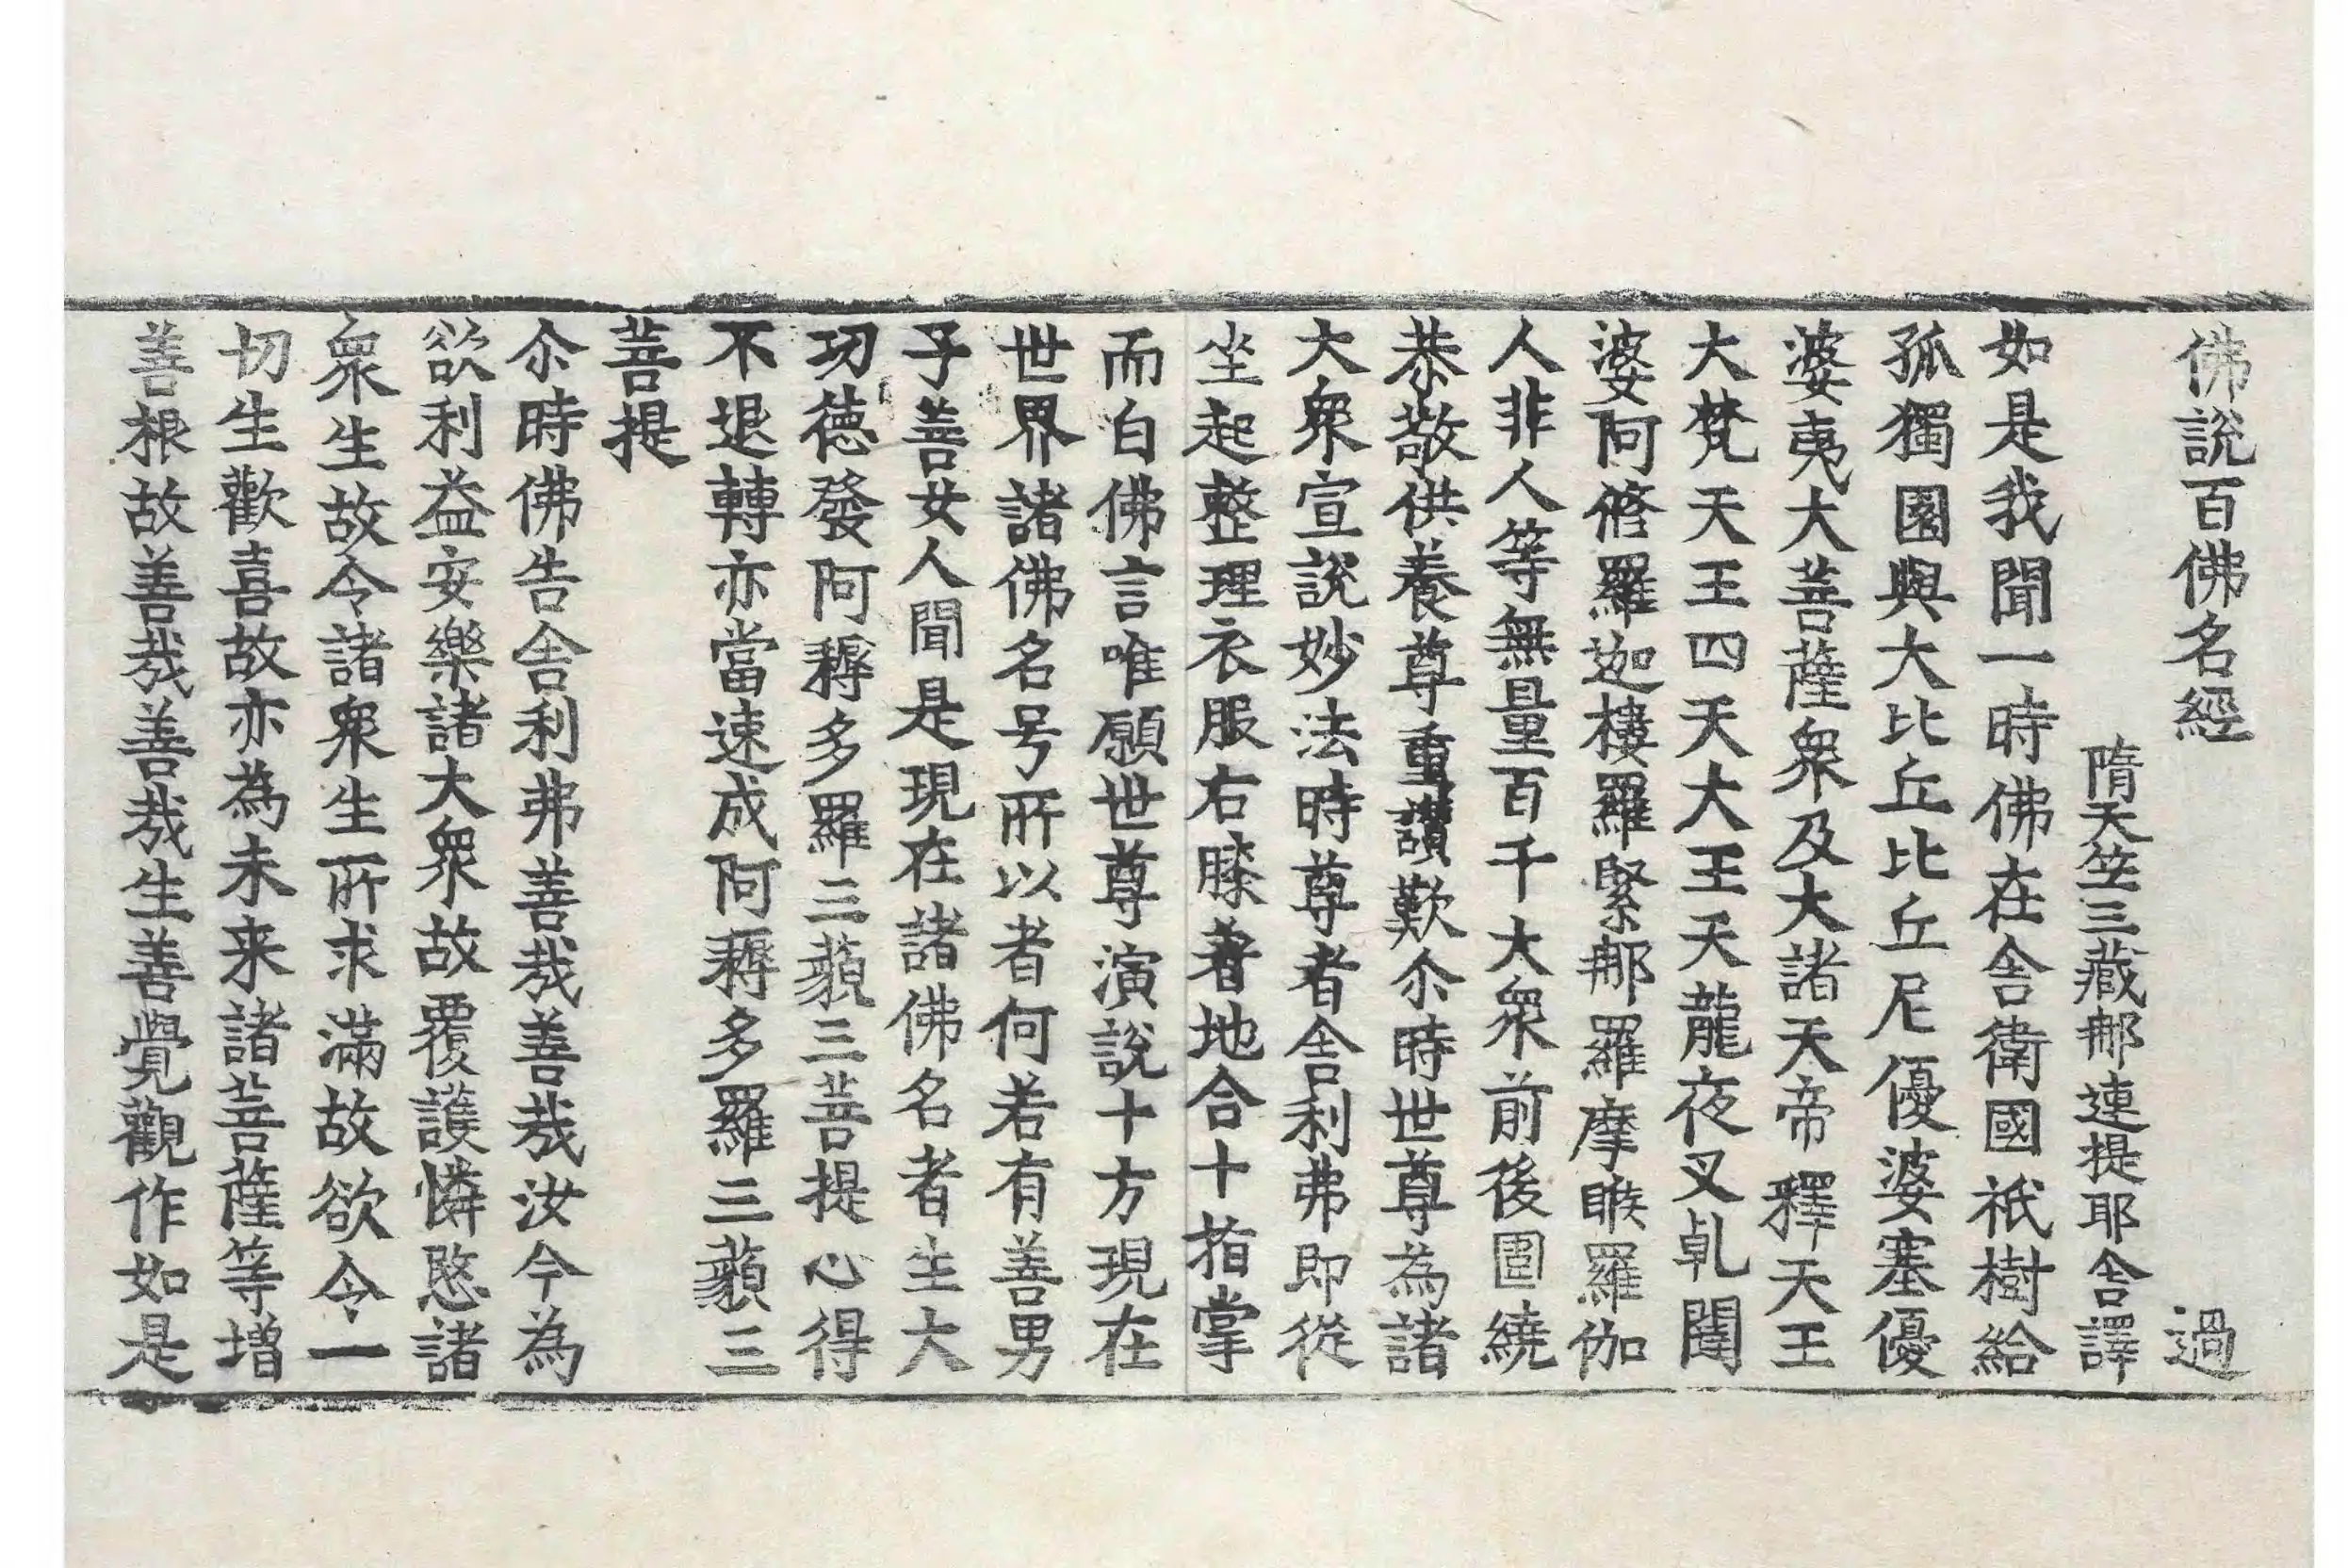 佛說百佛名經 過
隋天竺三藏那連提耶舍譯
如是我聞一時佛在舍衛國祇樹給
孤獨園與大比丘比丘尼優婆塞優
婆夷大菩薩衆及大諸天帝釋天王
大梵天王四天大王天龍夜叉乹闥
婆阿脩羅迦樓羅緊那羅摩睺羅伽
人非人等無量百千大衆前後圍繞
恭敬供養尊重讚歎尒時世尊為諸
大衆宣說妙法時尊者舍利弗即從
坐起整理衣服右膝著地合十指掌
而白佛言唯願世尊演說十方現在
世界諸佛名号所以者何若有善男
子善女人聞是現在諸佛名者生大
功德發阿耨多羅三藐三菩提心得
不退轉亦當速成阿耨多羅三藐三
菩提
尒時佛告舍利弗善哉善哉汝今為
欲利益安樂諸大衆故覆護憐愍諸
衆生故令諸衆生所求滿故欲令一
切生歡喜故亦為未来諸菩薩等增
善根故善哉善哉生善覺觀作如是